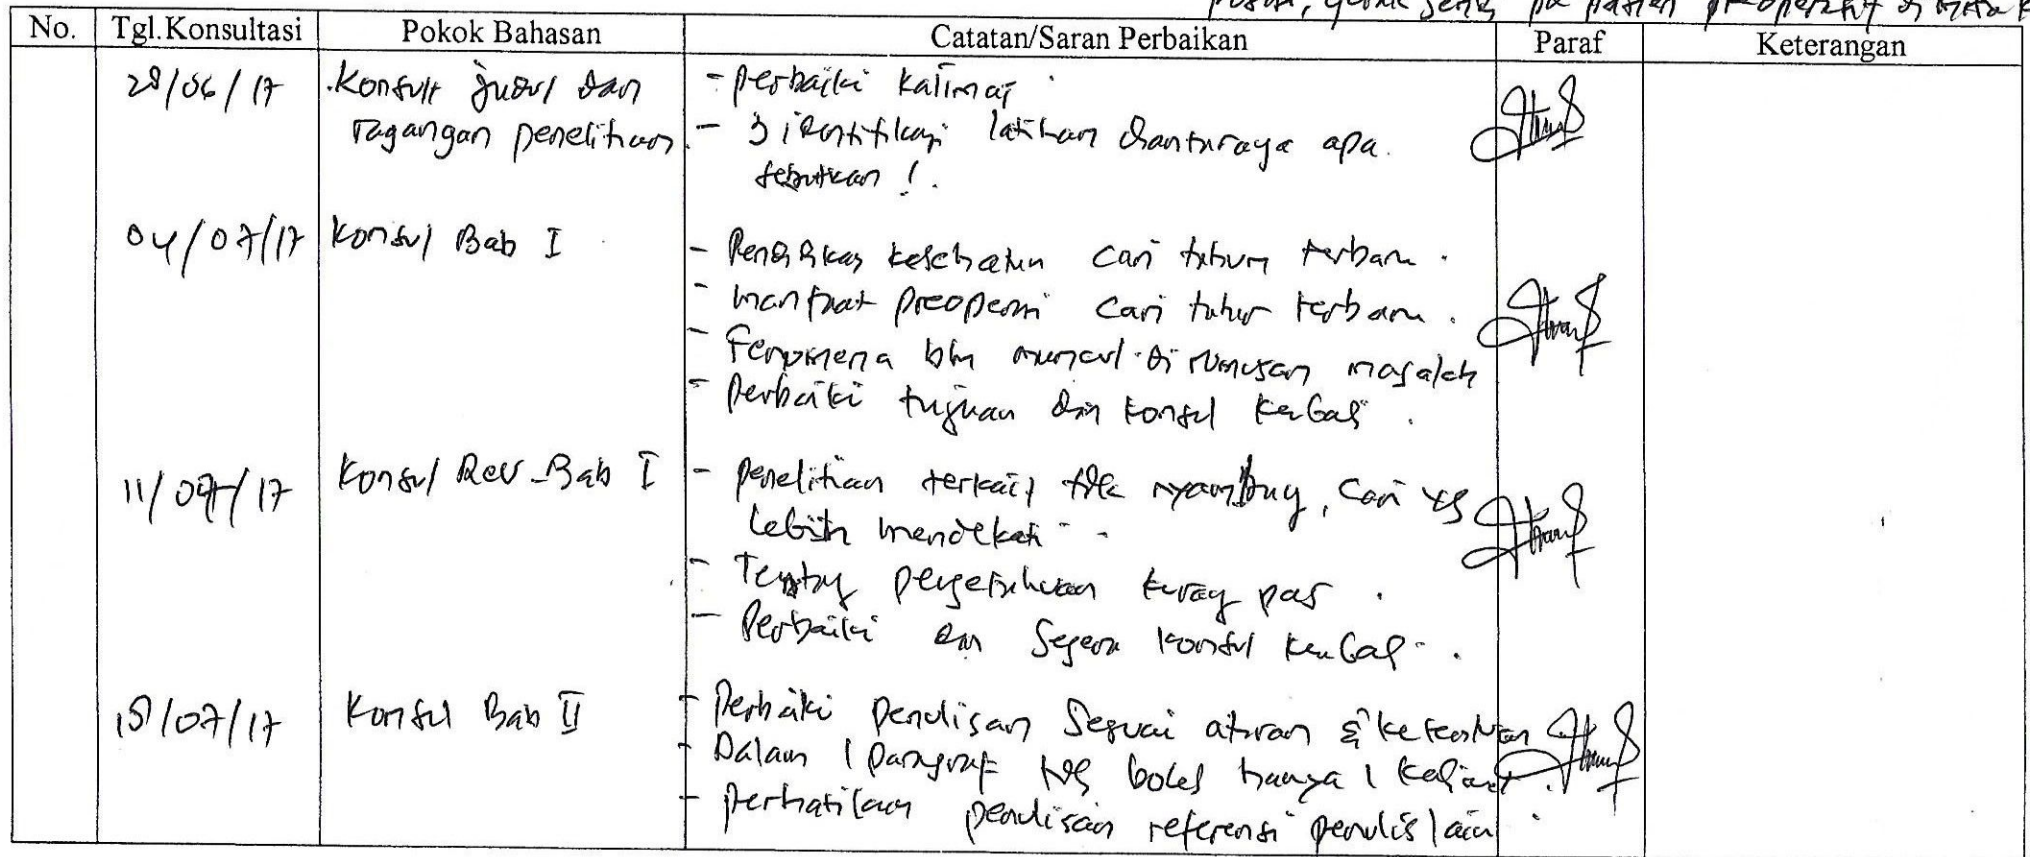 pasien preoperatif di
No. Tgl.Konsultasi Pokok Bahasan Catatan/Saran Perbaikan Paraf Keterangan
28/06/17 Konsult judul dan - perbaiki kalimat
ragangan penelitian - 3 identifikasi latihan diantaranya apa.
sebutkan !.
04/07/17 Konsul Bab I
- kesehatan cari tahun terbaru.
- manfaat preoperasi cari tahun terbaru.
- Fenomena blm muncul di rumusan masalah
- Perbaiki tujuan dan konsul kembali.
11/07/17 Konsul Rev Bab I - penelitian terkait tdk nyambung, cari yg
lebih mendekati
- Tentang pengetahuan kurang pas.
- Perbaiki dan segera konsul kembali.
/07/17 Konsul Bab II - Perbaiki penulisan sesuai aturan & ketentuan
- Dalam 1 paragraf tdk boleh hanya 1 kalimat.
- perhatikan penulisan referensi penulis lain